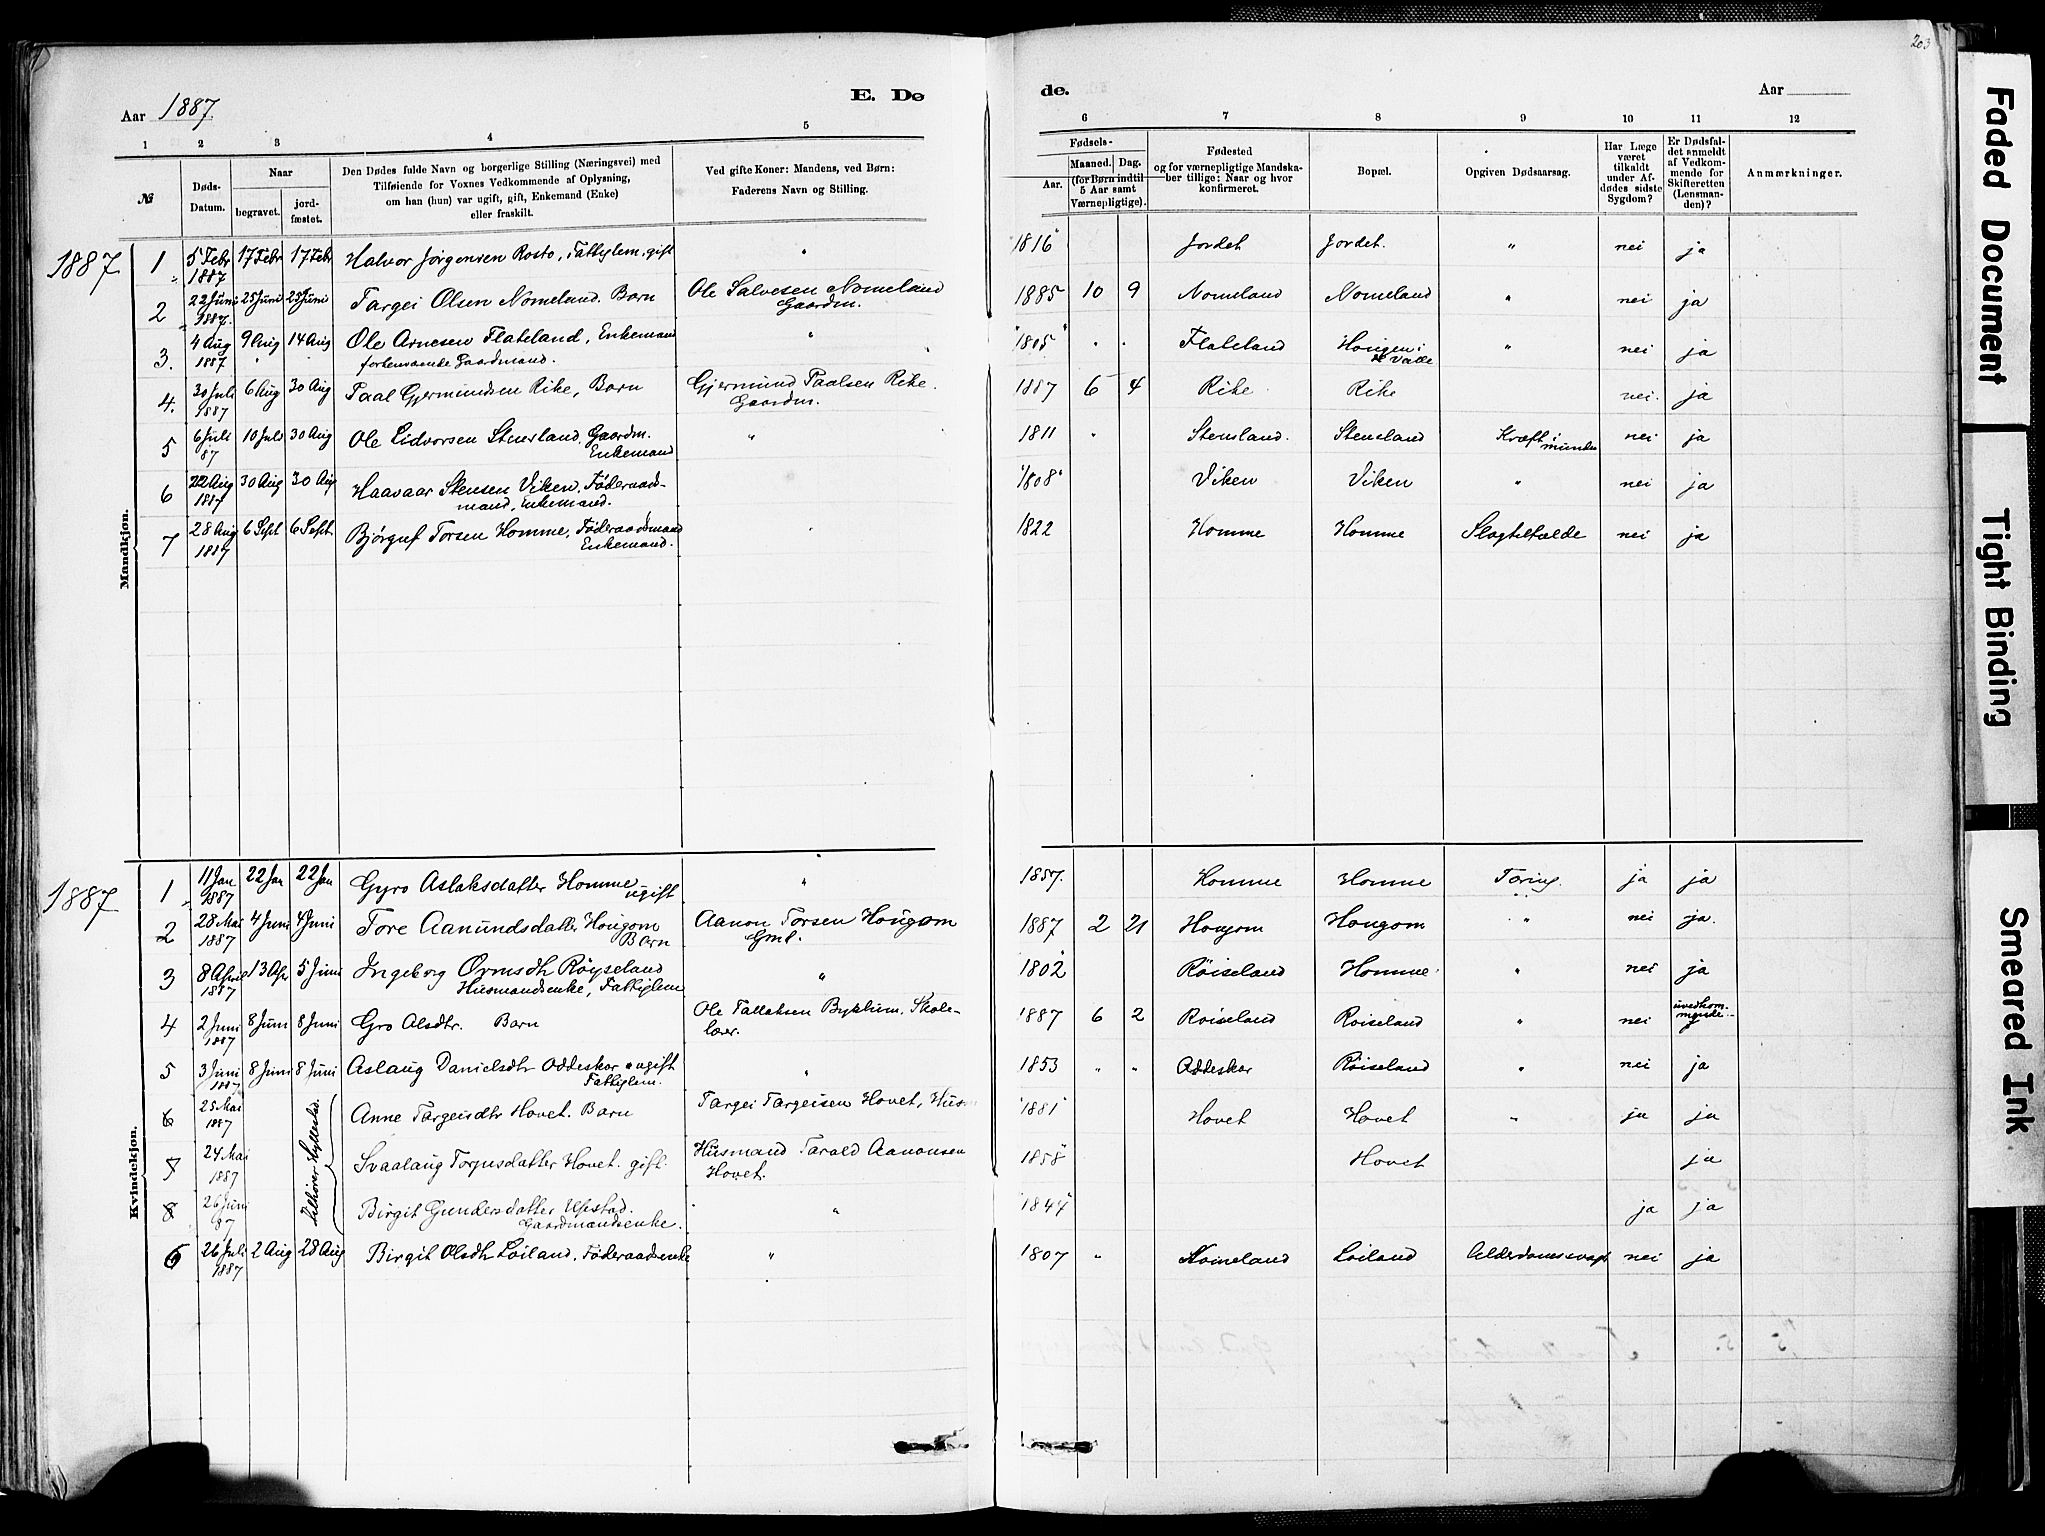 203
Aar 1887.
E. Dø
de.
Aar
1 2 3 4 5 6 7 8 9 10 11 12
№
Døds-
Datum.
Naar
begravet.
jord-
fæstet.
Den Dødes fulde Navn og borgerlige Stilling (Næringsvei) med
Tilføiende for Voxnes Vedkommende af Oplysning,
om han (hun) var ugift, gift, Enkemand (Enke)
eller fraskilt.
Ved gifte Koner: Mandens, ved Børn:
Faderens Navn og Stilling.
Fødsels-
Aar.
Maaned. Dag.
(for Børn indtil
5 Aar samt
Værnepligtige).
Fødested
og for værnepligtige Mandska-
ber tillige: Naar og hvor
konfirmeret.
Bopæl.
Opgiven Dødsaarsag.
Har Læge
været
tilkaldt
under Af-
dødes sidste
Sygdom?
Er Dødsfal-
det anmeldt
af Vedkom-
mende for
Skifteretten
(Lensman-
den)?
Anmærkninger.
Mandkjøn.
1887
1 5 Febr 17 Febr 17 Febr Halvor Jørgensen Rosto, Fattiglem, gift " 1816 Jordet Jordet. " nei ja
1887
2 22 Juni 25 Juni 25 Juni Targei Olsen Nomeland. Barn Ole Salvesen Nomeland 1885 10 9 Nomeland Nomeland " nei ja
1887. Gaardm.
3. 4 Aug 9 Aug 14 Aug Ole Arnesen Flateland, Enkemand " 1805 " " Flateland Hougen i " nei ja
1887 forhenværende Gaardmand. Valle
4. 30 Juli 6 Aug 30 Aug Paal Gjermundsen Rike, Barn Gjermund Paalsen Rike. 1887 6 4 Rike Rike nei. ja
1887 Gaardm.
5 6 Juli 10 Juli 30 Aug Ole Lidvorsen Stensland, Gaardm. " 1811 " Stensland. Stensland Kræft i nei ja
87 Enkemand munden
6 22 Aug 30 Aug 30 Aug Haavaar Stensen Viken, Føderaad- 1808 Viken Viken " nei ja
1887 mand, Enkemand.
7 28 Aug 6 Sept 6 Sept. Bjørguf Torsen Homme, Føderaadsmand 1822 Homme Homme Slagtilfælde nei ja
1887 Enkemand.
Kvindekjøn.
1887
1 11 Jan 22 Jan 22 Jan Gyro Aslaksdatter Homme " 1857. Homme Homme Tæring. ja ja
1887 ugift
2 28 Mai 4 Juni 4 Juni Tore Aanundsdatter Hougom Aanon Torsen Hougom 1887 2 21 Hougom Hougom " nei ja.
1887 Barn Gml.
3 8 April 13 Apr 5 Juni Ingeborg Ormsdtr Røyseland " 1802 Røiseland Homme " nei ja
1887 Husmandsenke, Fattiglem
4 2 Juni 8 Juni 8 Juni Gro Olsdtr. Barn Ole Tallaksen Byklum, Skole- 1887 6 2 Røiseland Røiseland " nei uvedkom-
1887 lærer. mende
5 3 Juni 8 Juni 8 Juni Aslaug Danielsdtr Oddeskar ugift " 1853 " " Oddeskar Røiseland " nei ja
1887 Fattiglem.
6 25 Mai Anne Targeisdtr Hovet. Barn Targei Targeisen Hovet, Husm 1881 Hovet Hovet " ja ja
1887
tilhører Hyllestad.
7 24 Mai Svaalaug Torjusdatter Hovet. gift. Husmand Tarald Aanonsen 1858 Hovet ja
1887 Hovet.
8 26 Juni Birgit Gundersdatter Upstad. " 1847 ja ja
87 Gaardmandsenke.
6 26 Juli 2 Aug 28 Aug Birgit Olsdtr Løiland, Føderaadsenke " 1807 " Nomeland Løiland Alderdomssvagh nei ja
1887
Faded Document
Tight Binding
Smeared Ink